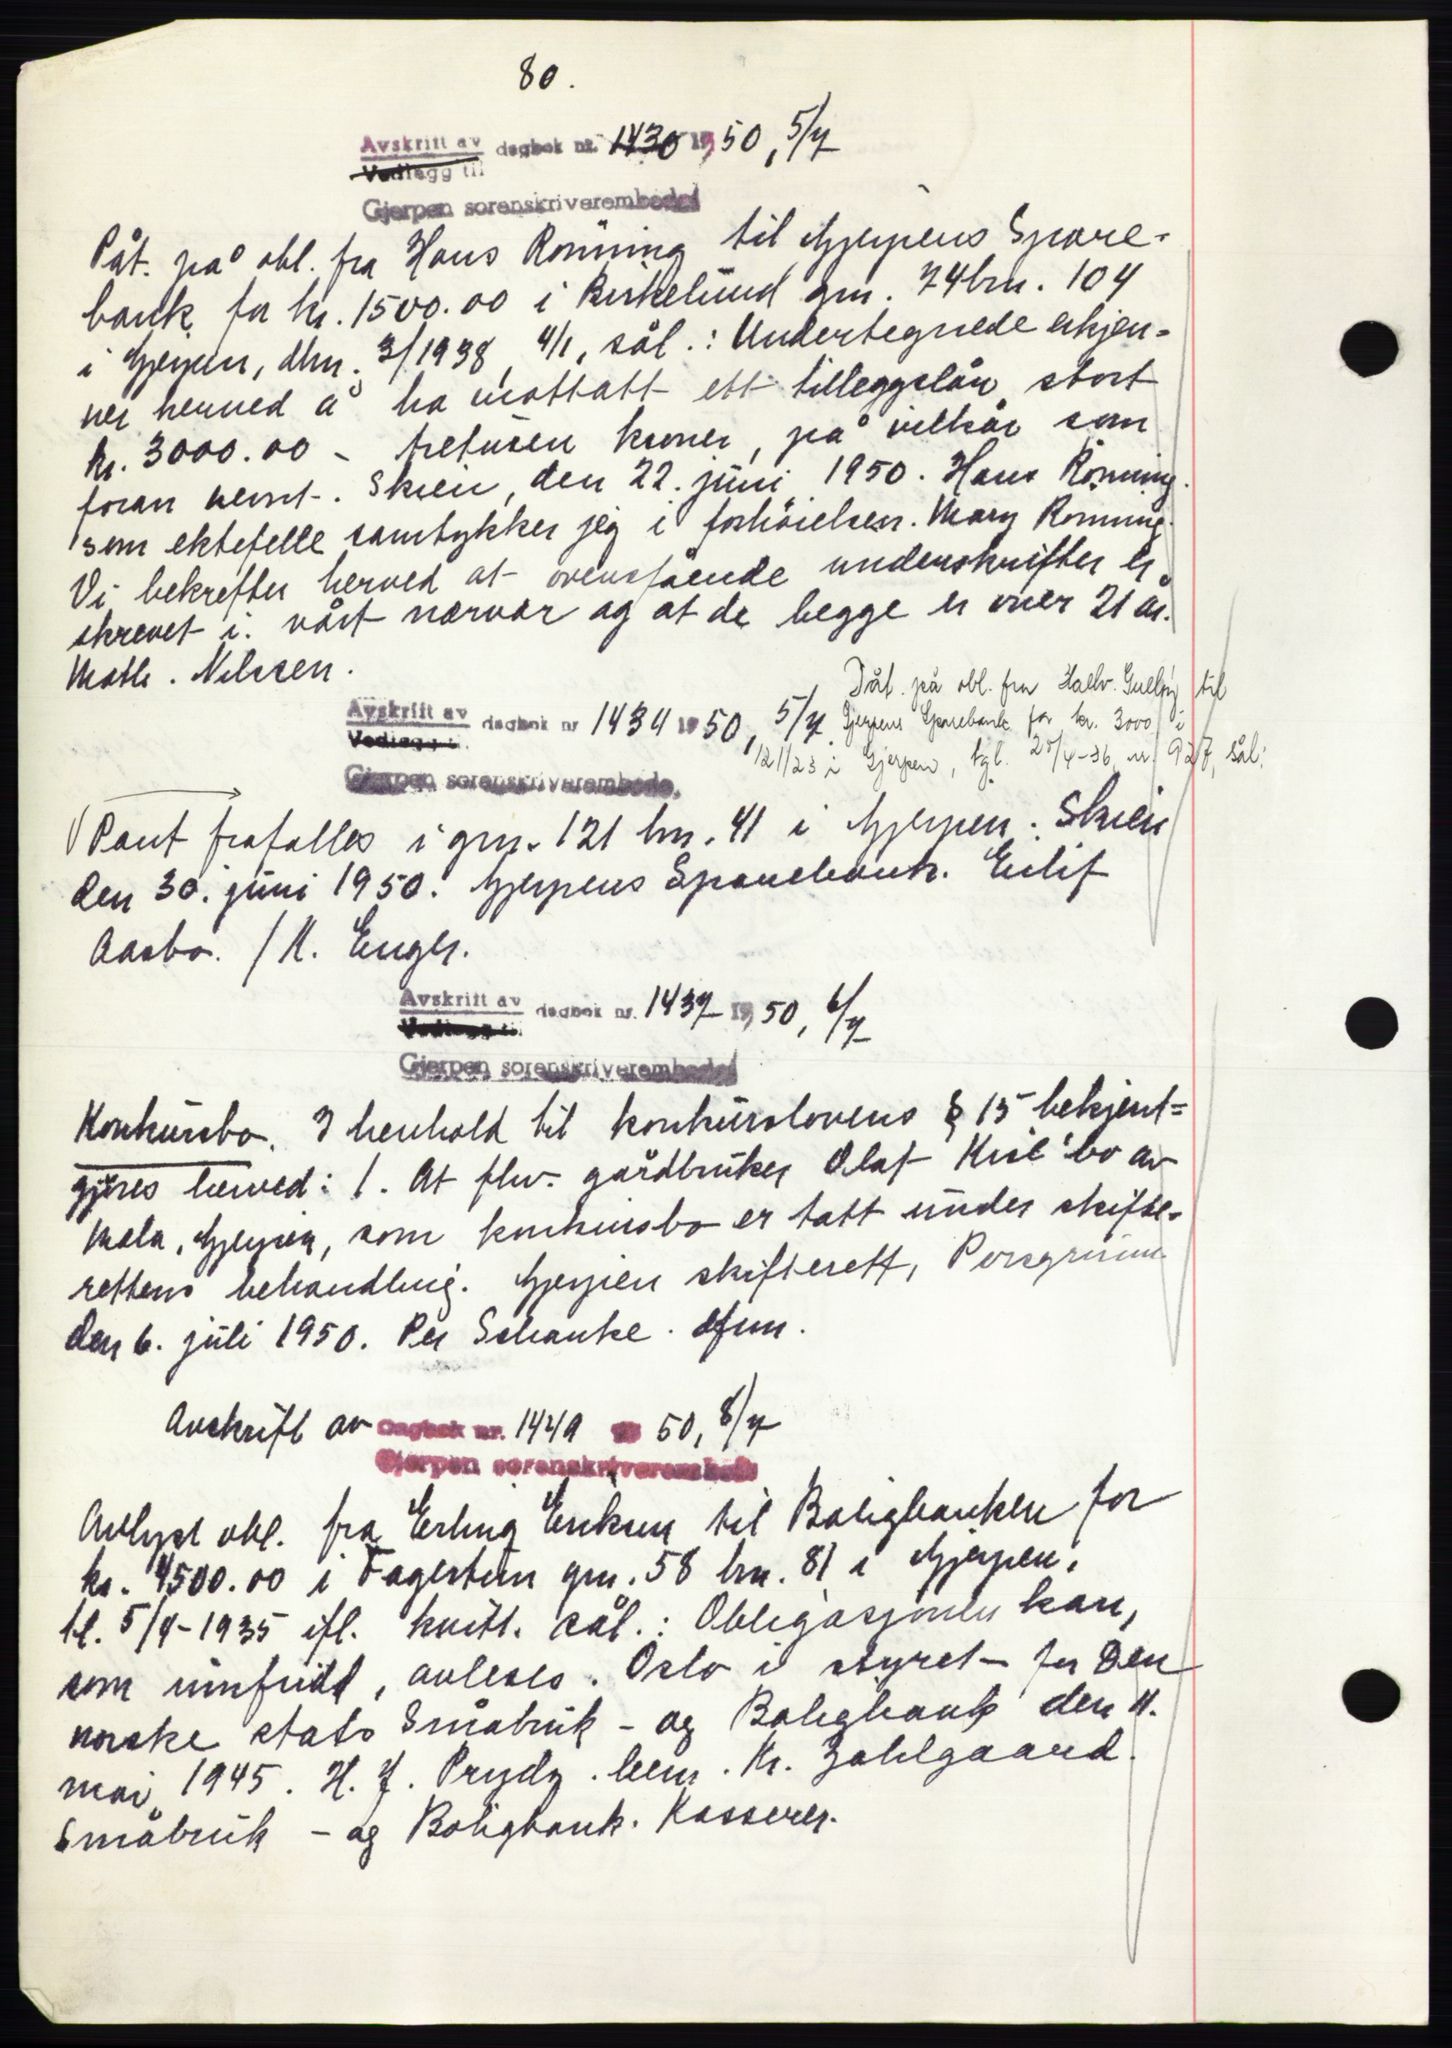 80.
Avskrift av dagbok nr. 1430 1950, 5/7
Vedlegg til
Gjerpen sorenskriverembede
Påt. på obl. fra Hans Rönning til Gjerpens Spare-
bank for kr. 1500.00 i Birkelund gnr. 74 brn. 104
i Gjerpen, dbn. 3/1938, 4/1, sål.: Undertegnede erkjen-
ner herved å ha mottatt ett tilleggslån stort
kr. 3000.00 - tretusen kroner, på vilkår som
foran nevnt. Skien, den 22. juni 1950. Hans Rönning.
som ektefelle samtykker jeg i forhöielsen. Mary Rönning.
Vi bekrefter herved at ovenstående underskrifter er
skrevet i vårt nærvær og at de begge er over 21 år.
Math. Nilssen.
Avskrift av dagbok nr 1434 1950, 5/7.
Vedlegg til
Gjerpen sorenskriverembede.
Påt. på obl. fra Halv. Gulseng til
Gjerpens Sparebank for kr. 3000 i
121/23 i Gjerpen, tgl. 25/4-36, nr. 927, sål:
Pant frafalles i gnr. 121 brn. 41 i Gjerpen. Skien
den 30. juni 1950. Gjerpens Sparebank. Eilif
Aasbo. / K. Enger.
Avskrift av dagbok nr. 1437 1950, 6/7
Vedlegg til
Gjerpen sorenskriverembede
Konkursbo. I henhold til konkurslovens § 15 bekjent-
gjöres herved: 1. At fhv. gårdbruker Olaf bo av
Mæla, Gjerpen, som konkursbo er tatt under skifte-
rettens behandling. Gjerpen skifterett, Porsgrunn
den 6. juli 1950. Per Schanke. dfm.
Avskrift av Dagbok nr. 1449 19 50, 8/7
Gjerpen sorenskriverembede
Avlyst obl. fra Erling Eriksen til Boligbanken for
kr. 4500.00 i Fagertun gnr. 58 brn. 81 i Gjerpen,
tl. 5/9-1935 ifl. kvitt. sål.: Obligasjonen kan,
som innfridd, avleses. Oslo i styret for Den
norske stats Småbruk - og Boligbank den 11.
mai 1945. H. J. Prydz. bem. Kr. Dahlgaard.
Småbruk - og Boligbank. Kasserer.